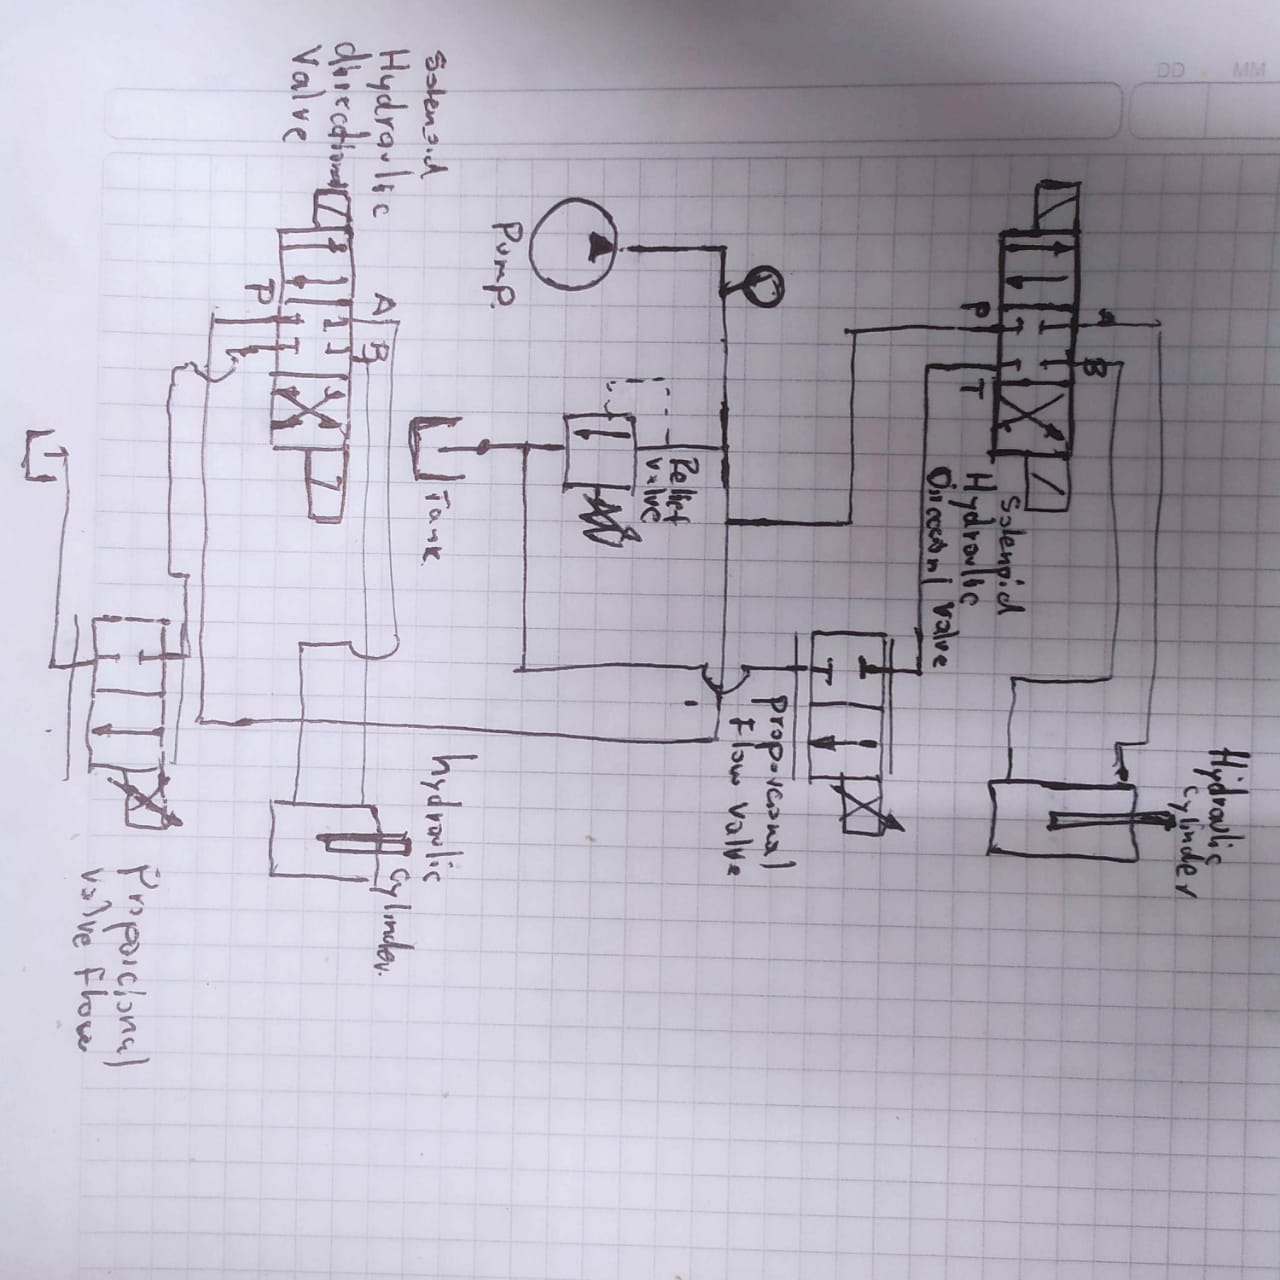 DD MM
Solenoid
Hydraulic
directional
Valve
P
A
B
Pump.
Tank
Relief
valve
P
T
A
B
Solenoid
Hydraulic
valve
Proporcional
Flow valve
Hidraulic
cylinder
hydraulic
cylinder.
Proporcional
valve Flow